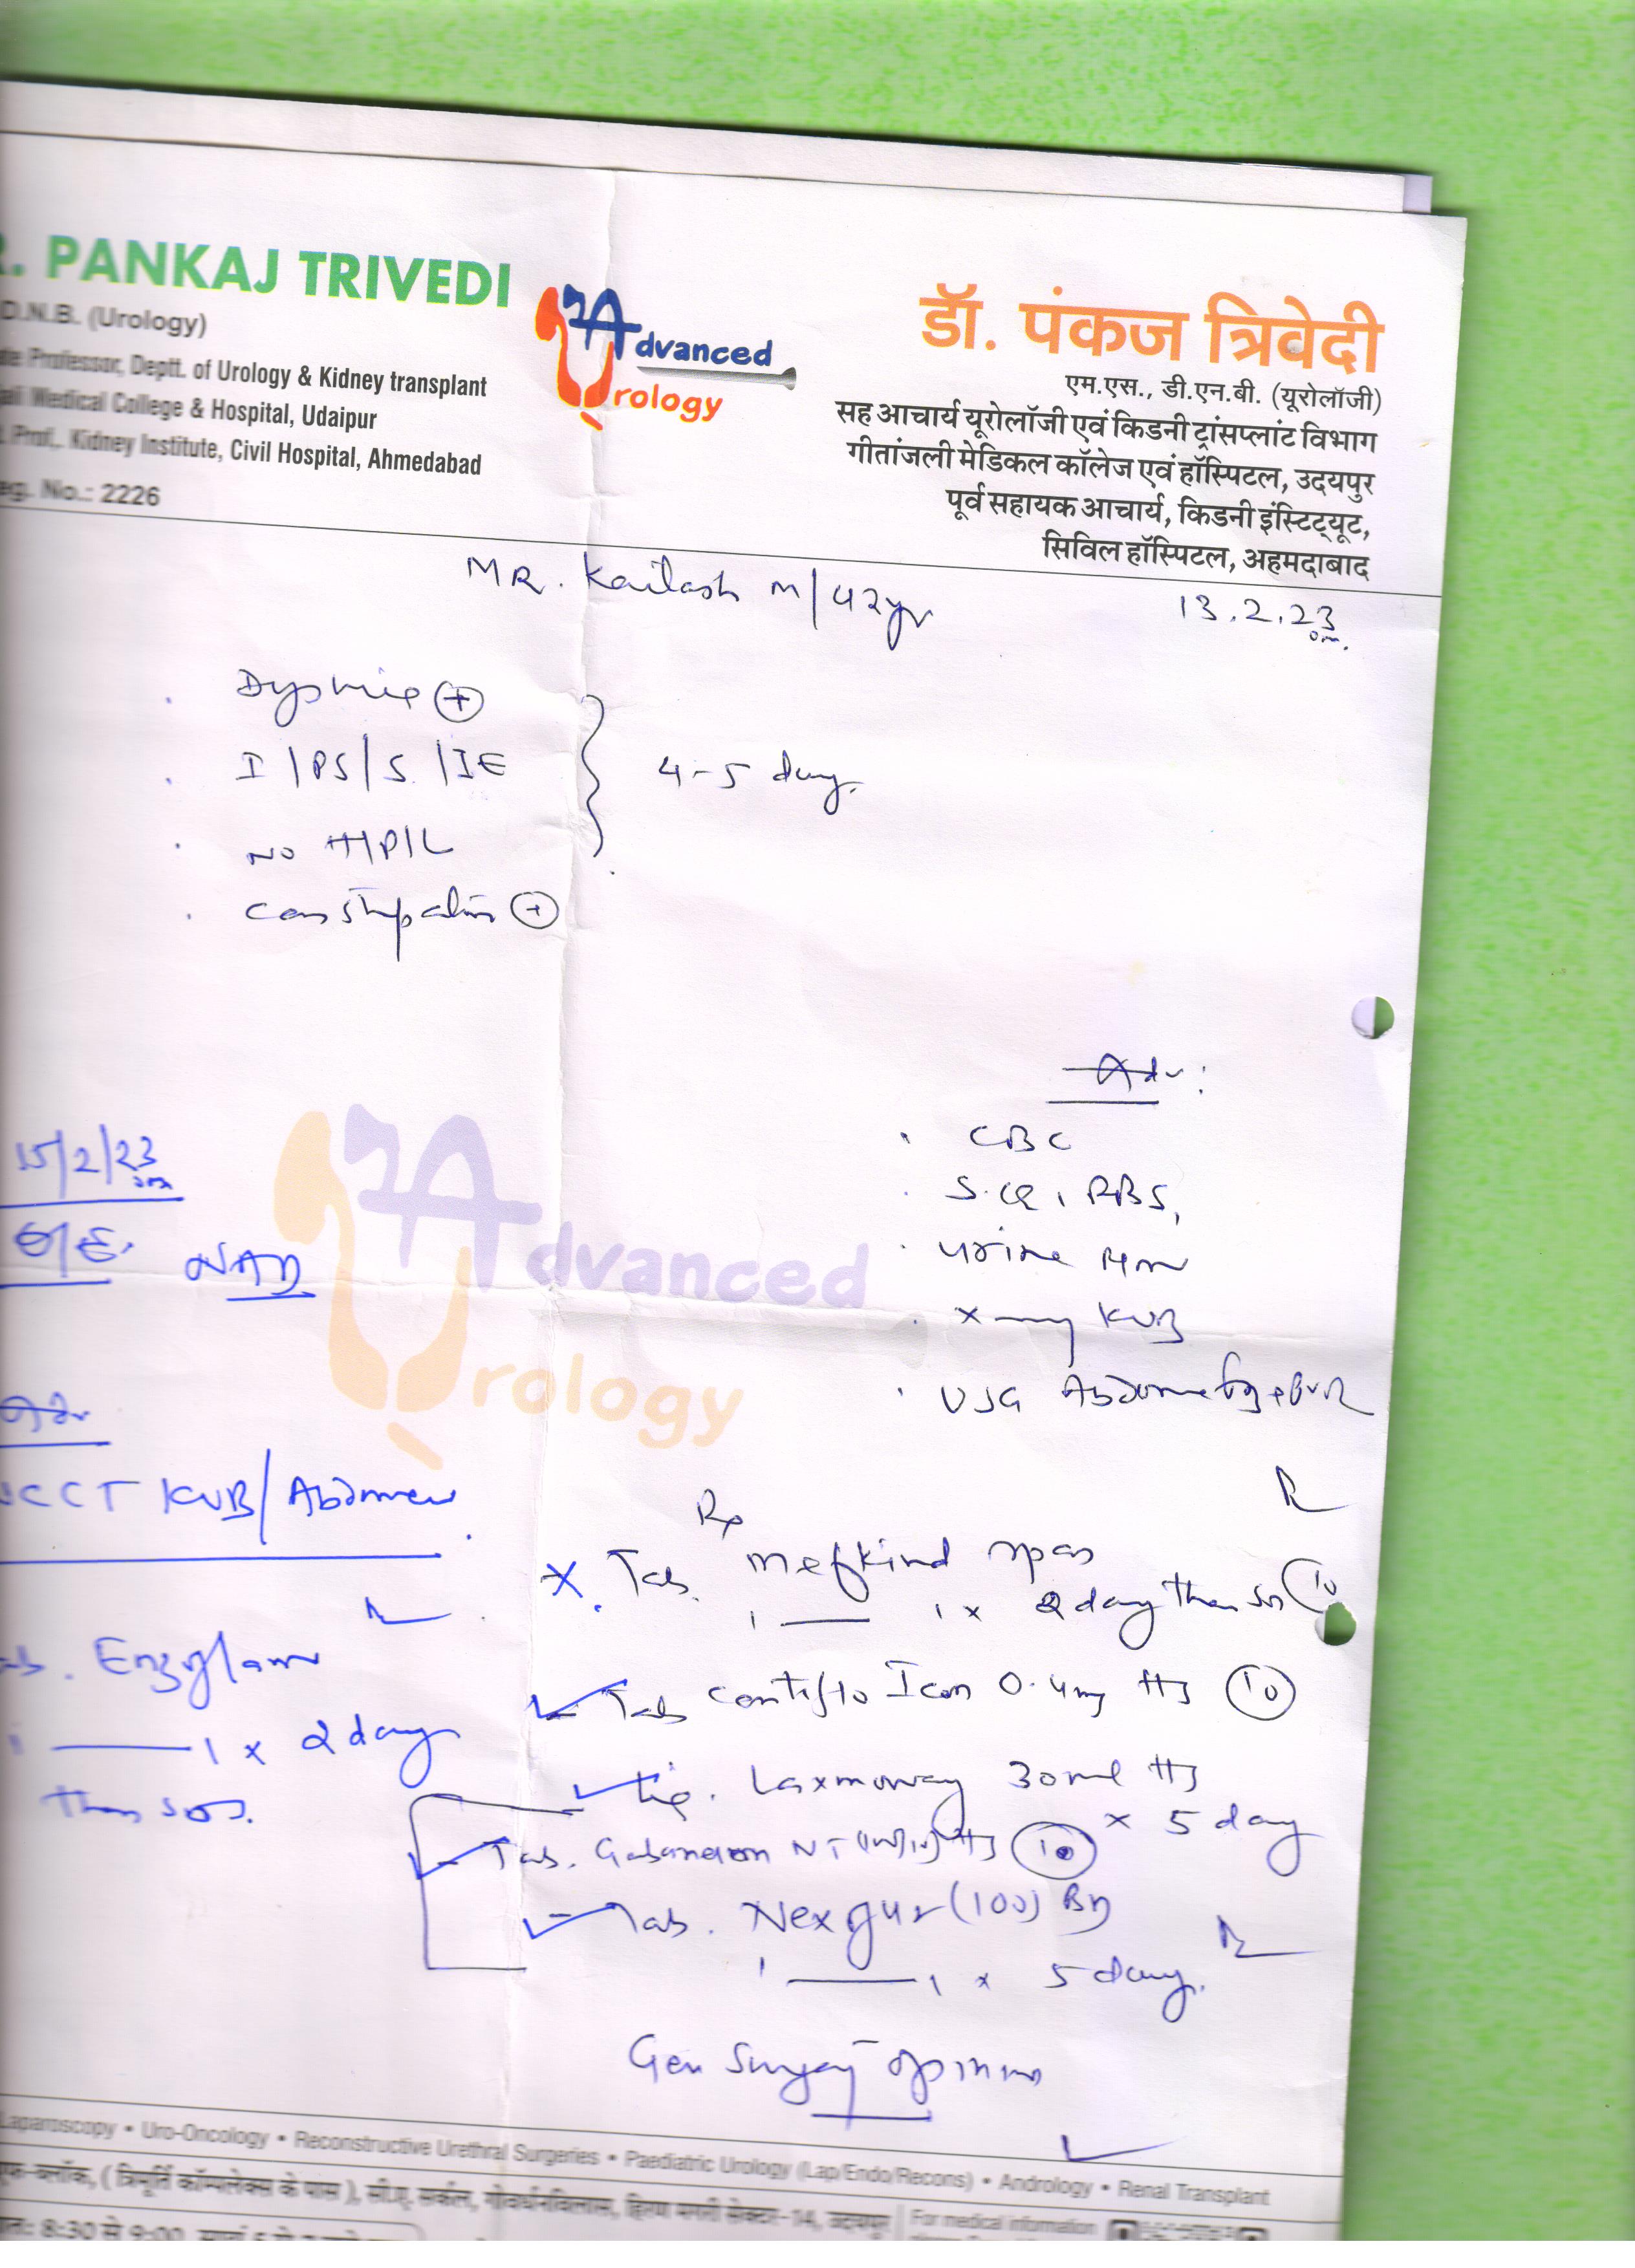 R. PANKAJ TRIVEDI
D.N.B. (Urology)
ate Professor, Deptt. of Urology & Kidney transplant
ali Medical College & Hospital, Udaipur
t. Prof., Kidney Institute, Civil Hospital, Ahmedabad
eg. No.: 2226
Advanced
Urology
डॉ. पंकज त्रिवेदी
एम.एस., डी.एन.बी. (यूरोलॉजी)
सह आचार्य यूरोलॉजी एवं किडनी ट्रांसप्लांट विभाग
गीतांजली मेडिकल कॉलेज एवं हॉस्पिटल, उदयपुर
पूर्व सहायक आचार्य, किडनी इंस्टिट्यूट,
सिविल हॉस्पिटल, अहमदाबाद
MR. Kailash M/42yr
13.2.23
I/PS/S./IE
4-5 day
NO H/P/L
Constipation +
Adv:
CBC
S.CR, RBS,
Urine
X-ray KUB
USG Abdomen
15/2/23
O/E. NAD
Adv
NCCT KUB/Abdomen
Advanced
Urology
Tab. Enzflam
1 — 1 x 2 day
then sos.
Rp
x. Tab. Mefkind spas
1 — 1 x 2 day then sos 10
Tab Contiflo Icon 0.4mg HS 10
Liq. Laxmoway 30ml HS
x 5 day
Tab. NT HS 10
Tab. (100) BD
1 — 1 x 5 day.
Gen Surgery opinion
Laparoscopy • Uro-Oncology • Reconstructive Urethral Surgeries • Paediatric Urology (Lap/Endo/Recons) • Andrology • Renal Transplant
एफ-ब्लॉक, (त्रिमूर्ति कॉम्पलेक्स के पास), सी.ए. सर्कल, गोवर्धनविलास, हिरण मगरी सेक्टर-14, उदयपुर
For medical information
8:30 से 9:00